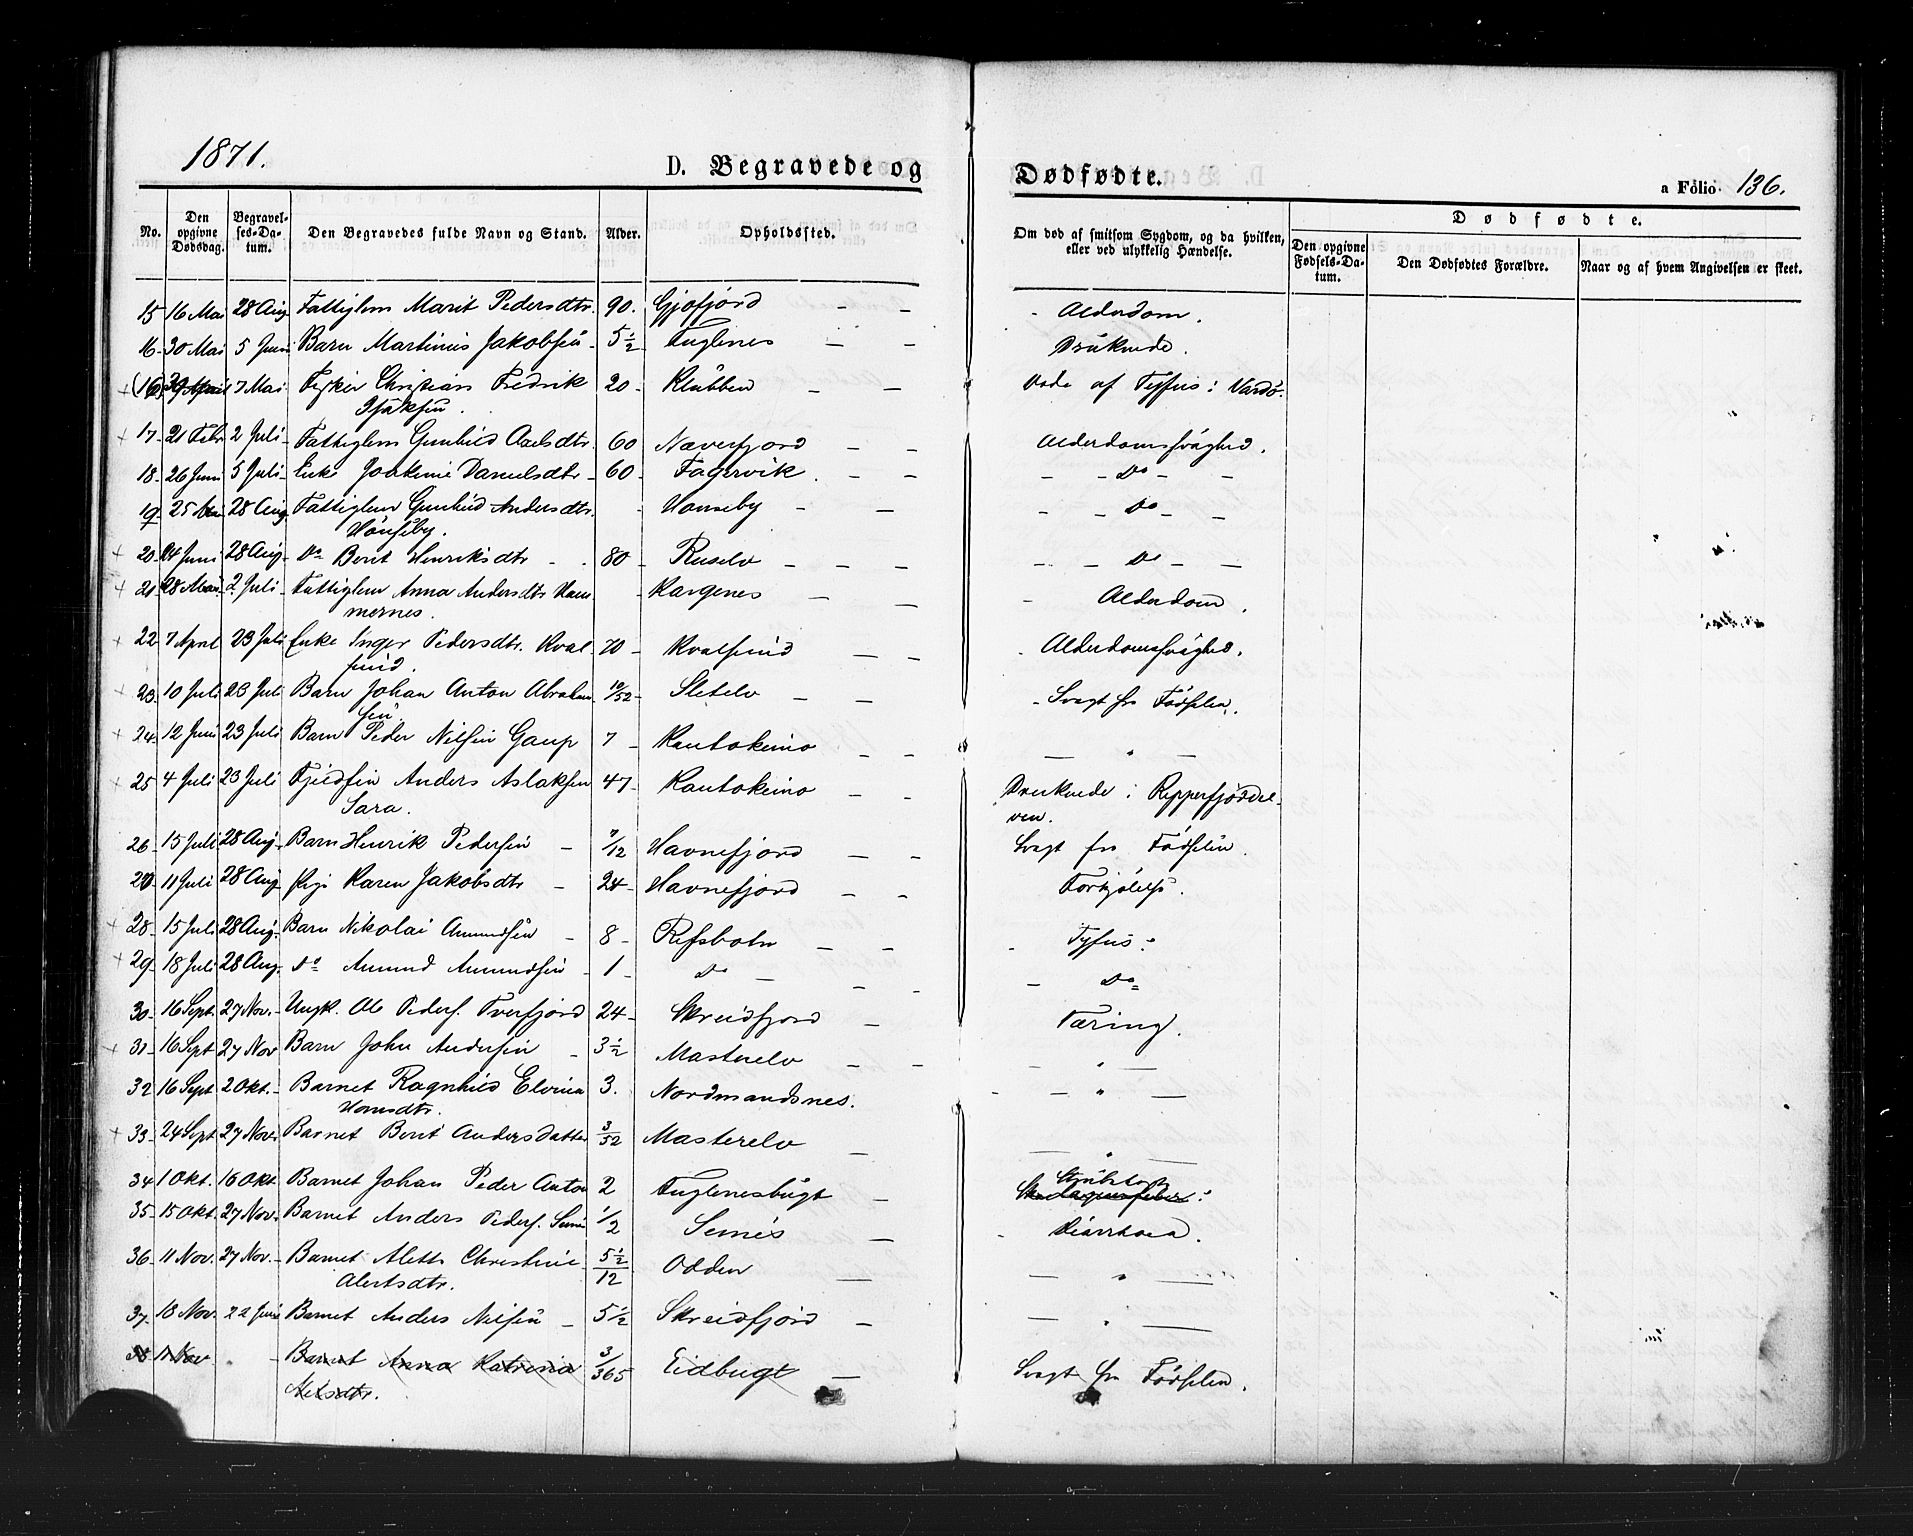 1871.
D. Begravede og Dødfødte.
a Folio 136.
No. Den opgivne Dødsdag. Begravelses-Datum. Den Begravedes fulde Navn og Stand. Alder. Opholdssted. Om død af smitsom Sygdom, og da hvilken, eller ved ulykkelig Hændelse. Dødfødte.
Den opgivne Fødsels-Datum. Den Dødfødtes Forældre. Naar og af hvem Angivelsen er skeet.
15 16 Mai 28 Aug Fattiglem Marit Pedersdtr. 90. Gjøfjord - - - Alderdom.
16- 30 Mai 5 Juni Barn Martinus Jakobsen - 5 1/2 Fuglenes - - Druknede.
+ (16) April 7 Mai Christian Fredrik 20 - Klubben - - Døde af Tyfus i Vardø.
Isaksen.
+ 17- 21 Febr 2 Juli- Fattiglem Gunhild Axelsdtr. 60 Næverfjord - - Alderdomssvaghed.
18- 26 Juni 5 Juli- Enke Joakime Danielsdtr - 60- Fagervik. - - - - Do - -
19- 25 28 Aug Fattiglem Gunhild Andersdtr. - Honseby - - - - Do - -
Hönseby.
+ 20- 24 Juni 28 Aug- Do Berit Henriksdtr - - 80 - Ruselv - - - - - Do - -
+ 21- 28 Mai 2 Juli- Fattiglem Anna Andersdtr Ham- - Kargenes - - - Alderdom.
mernes.
+ 22 7 April 23 Juli Enke Inger Pedersdtr. Kval- 70- Kvalsund - - - Alderdomssvaghed.
sund.
+ 23- 10 Juli 23 Juli Barn Johan Anton Abraham 10/52- Sletelv - - - Svagt fra Födselen.
sen.
+ 24- 12 Juni 23 Juli Barn Peder Nilsen Gaup 7 - Kautokeino - - - " -
+ 25 4 Juli 23 Juli Fjeldfin Anders Aslaksen 47- Kautokeino - - Druknede i Ripperfjordel-
Sara. ven.
26- 15 Juli 28 Aug- Barn Henrik Pedersen - 7/12 Havnefjord - - Svagt fra Födselen.
27- 11 Juli 28 Aug Pige Karen Jakobsdtr - 24- Havnefjord - - Forkjölelse.
+ 28- 15 Juli 28 Aug- Barn Nikolai Amundsen - 8 - Refsbotn - - - Tyfus.
+ 29- 18 Juli 28 Aug- Do Amund Amundsen - 1 - Do - - - - Do
30- 16 Sept. 27 Nov. Ungk. Ole Peders. Tverfjord 24- Skreidfjord - Tæring.
+ 31- 16 Sept 27 Nov Barn John Andersen - 3 1/2 Masterelv - - - " -
32 16 Sept 2 Okt. - Barnet Ragnhild Elvina 3. Nordmandsnes. - - " -
Hansdtr.
+ 33- 24 Sept 27 Nov. Barnet Berit Andersdatter 3/52 Masterelv - - " -
34 1 Okt. 16 Okt Barnet Johan Peder Anton 2 Fuglenesbugt - Strubehoste
35- 15 Okt. 27 Nov- Barnet Anders Peders. 1/2 Semes - - Diarrhoea.
36- 11 Nov. 27 Nov- Barnet Alette Christine 5 1/2 /12 Odden - - " -
Alertsdtr.
37- 18 Nov. 22 Juni Barnet Anders Nilsen - 5 1/2 Skreidfjord - - " -
38 11 Nov - Barnet Anna Katrina 3/365 Eidbugt - Svagt fra Födselen.
Nilsdtr.